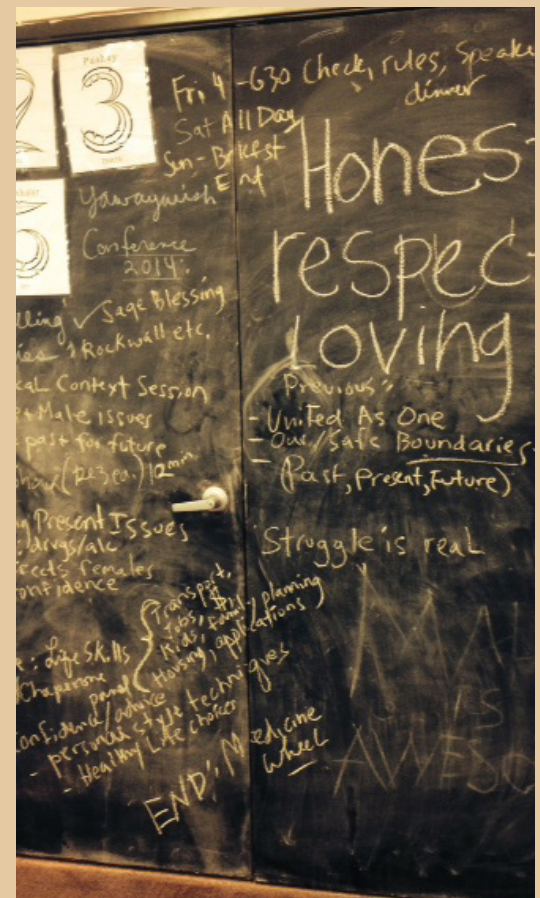 3
Fri 4 - 630 Check, rules, Speake
dinner
Sat All Day
Sun - Brkfst
Yawaywish
Conference
2014.
lling ✓ Sage Blessing
ies Rockwall etc.
cal Context Session
Male issues
past for future
12 min.
g Present Issues
drugs/alc
ects females
onfidence
: Life Skills
Chaperone
panel
Transport,
Jobs,
Kids, family planning
Housing, applications
onfidence/advice
- personal style techniques
- Healthy Life choices
END: Medicine
Wheel
Hones
respec
Loving
Previous:
- United As One
- Our/Safe Boundaries
- (Past, Present, Future)
Struggle is real
MAL
IS
AWESO